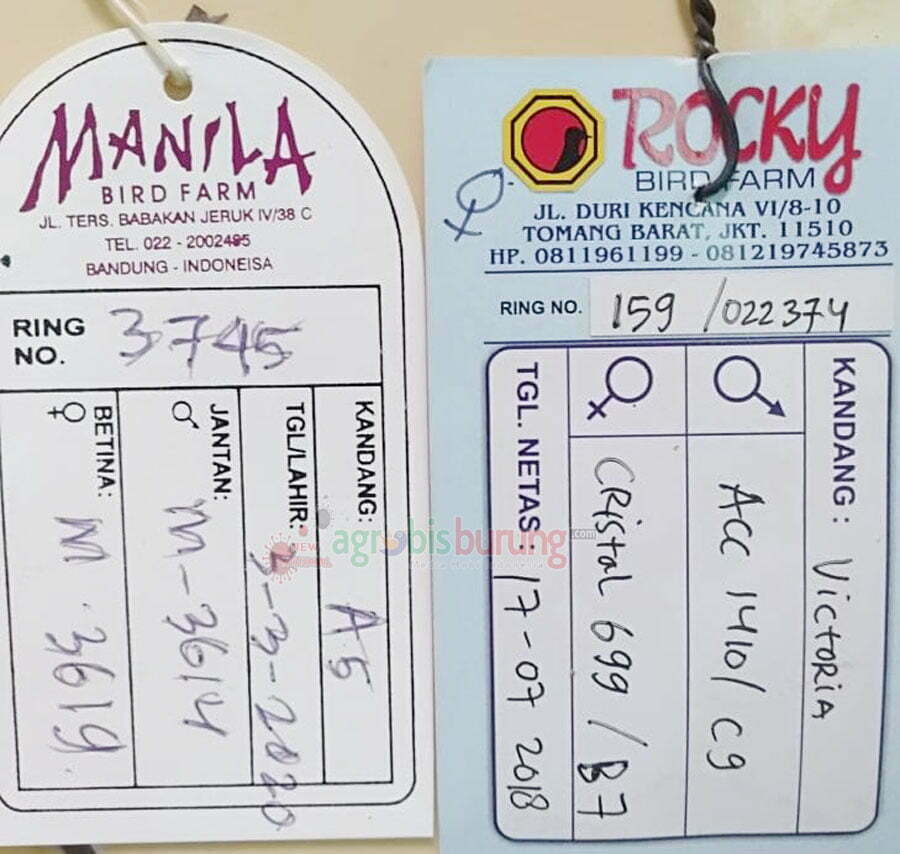 MANILA
BIRD FARM
JL. TERS. BABAKAN JERUK IV/38 C
TEL. 022 - 2002495
BANDUNG - INDONEISA
RING NO. 3745
KANDANG: A5
TGL/LAHIR: 3-3-2020
JANTAN: ♂ M-3614
BETINA: ♀ M.3619.
ROCKY
BIRD FARM
♀
JL. DURI KENCANA VI/8-10
TOMANG BARAT, JKT. 11510
HP. 0811961199 - 081219745873
RING NO. 159 /022374
KANDANG : VICTORIA
♂ ACC 1410/C9
♀ CRistal 699 / B7
TGL. NETAS : 17-07 2018
NEW agrobisburung.com